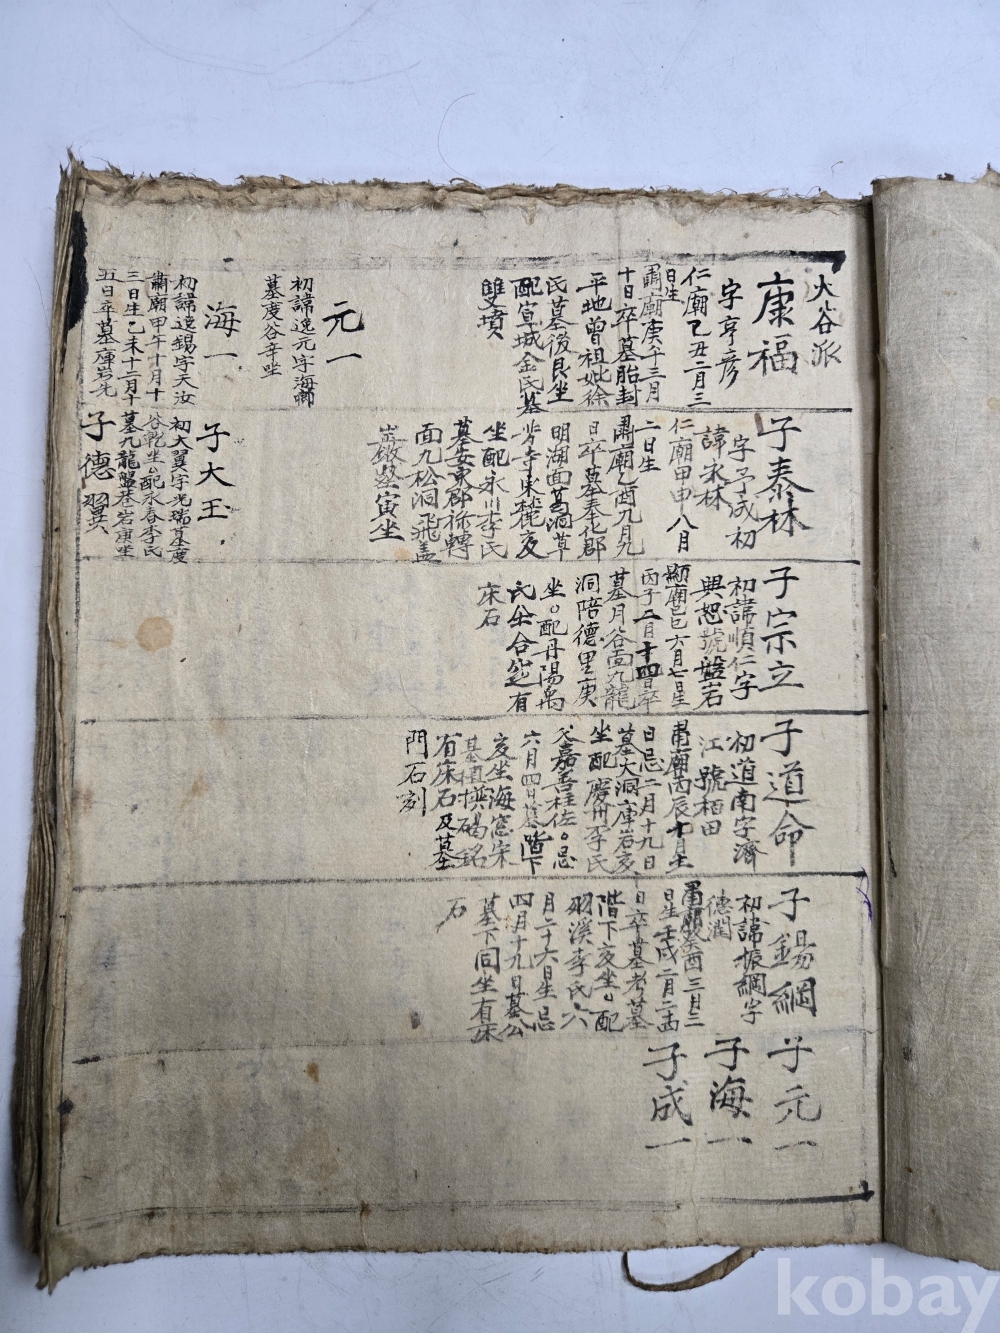 大谷派
康福
字亨彦
仁廟乙丑二月三
日生
肅廟庚午三月
十日卒墓胎封
平地曾祖妣徐
氏墓後艮坐
配宣城金氏墓
雙墳
元一
初諱逸元字海卿
墓度谷辛坐
海一
初諱逸錫字天汝
肅廟甲午十月十
三日生乙未十二月十
五日卒墓庫岩先
子泰林
字子成初
諱永林
仁廟甲申八月
二日生
肅廟乙酉九月九
日卒墓奉化郡
明湖面葛洞草
芳寺東麓亥
坐配永川李氏
墓安東郡祿轉
面九松洞飛盖
山嶽麓寅坐
子大玉
初大翼字光瑞墓度
谷乾坐配永春李氏
墓九龍盤巷岩庚坐
子德翼
子宗立
初諱順仁字
興恕號盤岩
顯廟己巳六月七日
丙子二月十四日卒
墓月谷面九龍
洞陪德里庚
坐配丹陽禹
氏 合窆有
床石
子道命
初道南字濟
江號栢田
肅廟丙辰十月生
日忌二月十九日
墓大洞庫岩亥
坐配慶州李氏
父嘉善桂佐忌
六月四日墓階下
亥坐海窓宋
基植撰碣銘
有床石及墓
門石刻
子錫綱
初諱振綱字
德潤
肅廟癸酉三月二
日生壬戌二月二
十日卒墓考墓
階下亥坐配
羽溪李氏六
月二十六日生忌
四月十九日墓公
墓下同坐有床
石
子元一
子海一
子成一
kobay